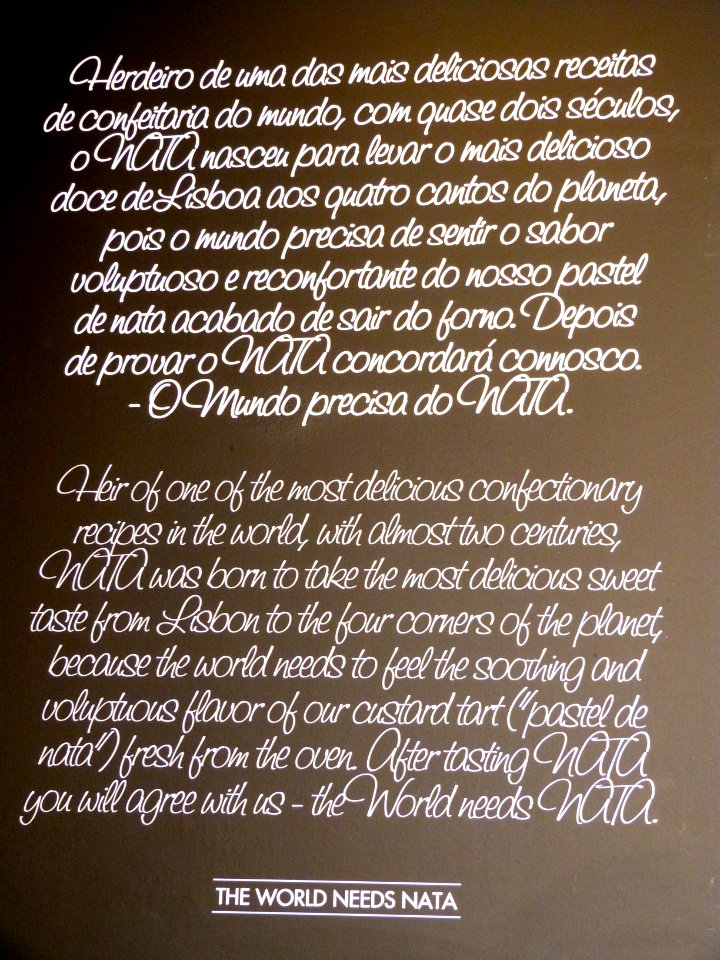 Herdeiro de uma das mais deliciosas receitas
de confeitaria do mundo, com quase dois séculos,
o NATA nasceu para levar o mais delicioso
doce de Lisboa aos quatro cantos do planeta,
pois o mundo precisa de sentir o sabor
voluptuoso e reconfortante do nosso pastel
de nata acabado de sair do forno. Depois
de provar o NATA concordará connosco.
- O Mundo precisa do NATA.
Heir of one of the most delicious confectionary
recipes in the world, with almost two centuries,
NATA was born to take the most delicious sweet
taste from Lisbon to the four corners of the planet,
because the world needs to feel the soothing and
voluptuous flavor of our custard tart ("pastel de
nata") fresh from the oven. After tasting NATA
you will agree with us - the World needs NATA.
THE WORLD NEEDS NATA